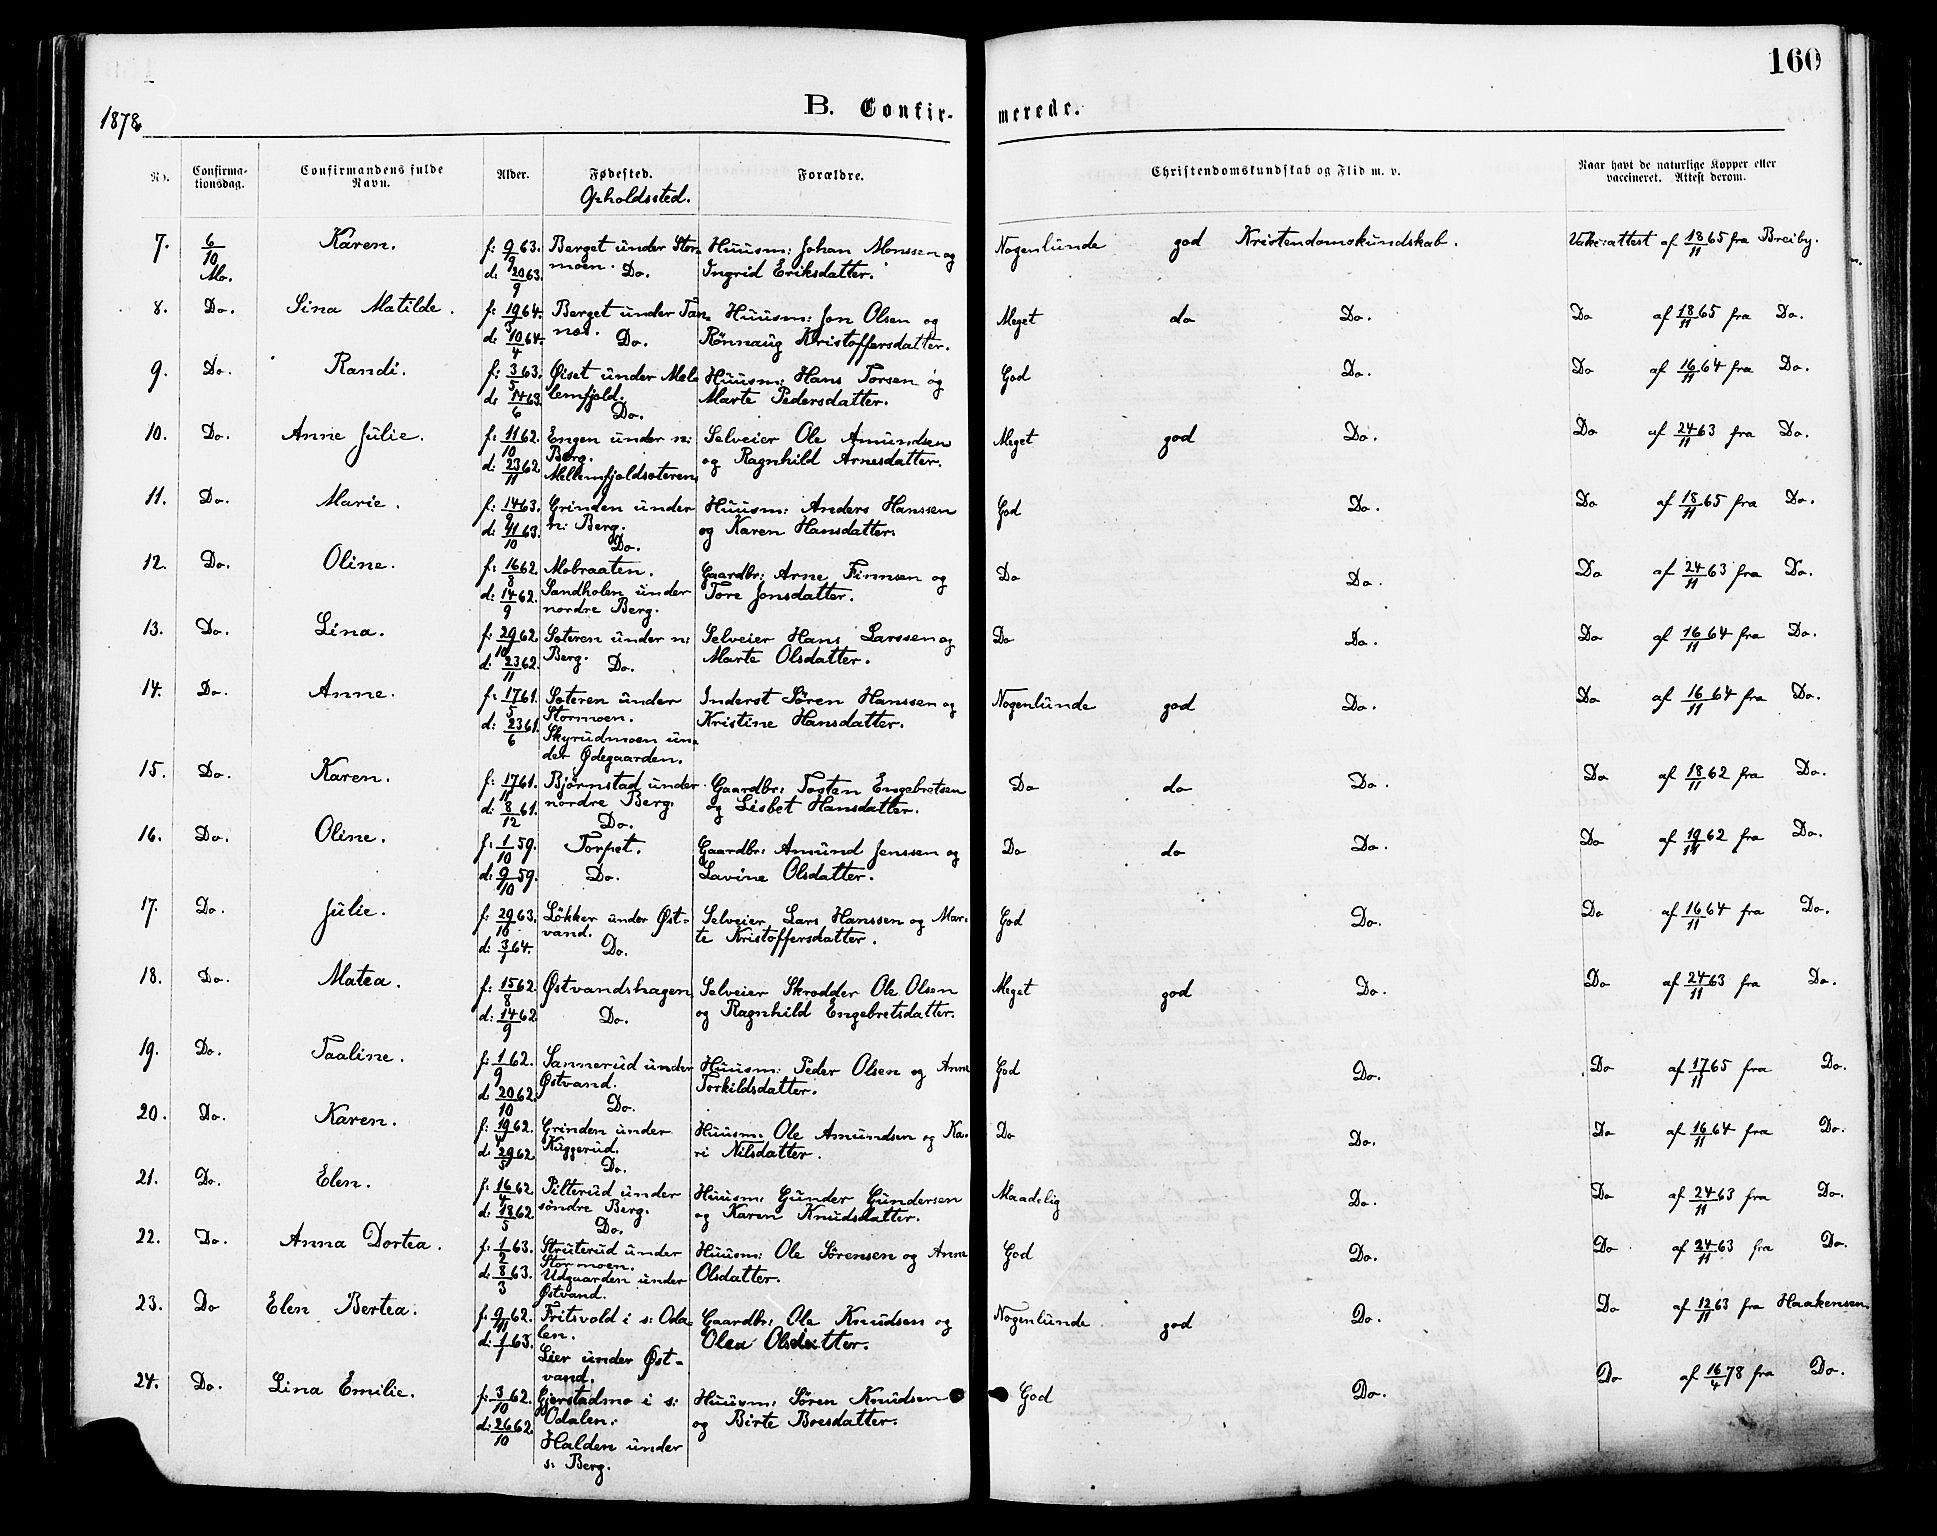 160
1878
B. Confir-
merede.
No. Confirma-tionsdag. Confirmandens fulde Navn. Alder. Fødested. Opholdssted. Forældre. Christendomskundskab og Flid m. v. Naar havt de naturlige Kopper eller vaccineret. Attest derom.
7. 6/10 Mo. Karen. f: 9/9 63. d: 20/9 63. Berget under Stormoen. Do. Huusm: Johan Monssen og Ingrid Eriksdatter. Nogenlunde god Kristendomskundskab. Vakc:attest af 18/11 65 fra Breiby.
8. Do. Sina Matilde. f: 19/3 64. d: 10/4 64. Berget under Tannes. Do. Huusm: Jon Olsen og Rønnaug Kristoffersdatter. Meget do Do. Do af 18/11 65 fra Do.
9. Do. Randi. f: 3/5 63. d: 14/6 63. Øiset under Mellemfjeld. Do. Huusm: Hans Torsen og Marte Pedersdatter. God Do. Do af 16/11 64 fra Do.
10. Do. Anne Julie. f: 11/10 62. d: 23/11 62. Engen under n: Berg. Mellemfjeldsæteren Selveier Ole Amundsen og Ragnhild Arnesdatter. Meget god Do. Do af 24/11 63 fra Do.
11. Do. Marie. f: 14/9 63. d: 11/10 63. Grinden under n: Berg. Do. Huusm: Anders Hanssen og Karen Hansdatter. God Do. Do af 18/11 65 fra Do.
12. Do. Oline. f: 16/8 62. d: 14/9 62. Mobraaten. Sandholen under nordre Berg. Gaardbr: Arne Finnsen og Tore Jonsdatter. Do Do. Do af 24/11 63 fra Do.
13. Do. Lina. f: 29/10 62. d: 23/11 62. Sæteren under n: Berg. Do. Selveier Hans Larssen og Marte Olsdatter. Do Do. Do af 16/11 64 fra Do.
14. Do. Anne. f: 17/5 61. d: 23/6 61. Sæteren under Stormoen. Skyrudmoen under Ødegaarden. Inderst Søren Hanssen og Kristine Hansdatter. Nogenlunde god Do. Do af 16/11 64 fra Do.
15. Do. Karen. f: 17/11 61. d: 8/12 61. Bjørnstad under nordre Berg. Do. Gaardbr: Tosten Engebretsen og Lisbet Hansdatter. Do do Do. Do af 18/11 62 fra Do.
16. Do. Oline. f: 1/10 59. d: 9/10 59. Torpet. Do. Gaardbr: Amund Jenssen og Lavine Olsdatter. Do do Do. Do af 19/11 62 fra Do.
17. Do. Julie. f: 29/10 63. d: 3/1 64. Løkker under Østvand. Do. Selveier Lars Hanssen og Marte Kristoffersdatter. God Do. Do af 16/11 64 fra Do.
18. Do. Matea. f: 15/8 62. d: 14/9 62 Østvandshagen Do. Selveier Skrædder Ole Olsen og Ragnhild Engebretsdatter. Meget god Do. Do af 24/11 63 fra Do.
19. Do. Taaline. f: 1/9 62. d. 20/10 62. Sannerud under Østvand. Do. Huusm: Peder Olsen og Anne Torkildsdatter. God Do. Do af 17/11 65 fra Do.
20. Do. Karen. f: 19/4 62. d. 29/5 62 Grinden under Kuggerud. Do. Huusm: Ole Amundsen og Kari Nilsdatter. Do Do. Do af 16/11 64 fra Do.
21. Do. Elen. f: 16/4 62 d: 18/5 62 Pilterud under søndre Berg. Do. Huusm: Gunder Gundersen og Karen Knudsdatter. Maadelig Do. Do af 24/11 63 fra Do.
22. Do. Anna Dortea. f: 1/2 63. d: 8/3 63. Struterud under Stormoen. Udgaarden under Østvand. Huusm: Ole Sørensen og Anne Olsdatter. God Do. Do af 24/11 63 fra Do.
23. Do Elen Bertea. f: 9/11 62. d: 1/1 63. Fritsvold i s: Odalen. Lier under Østvand. Gaardbr: Ole Knudsen og Olea Olsdatter. Nogenlunde god Do. Do af 12/11 63 fra Haakensen.
24. Do. Lina Emilie. f: 3/10 62. d: 26/10 62. Gjerstadmo i s: Odalen. Halden under s: Berg. Huusm: Søren Knudsen og Birte Boesdatter. God Do. Do af 16/4 78 fra Do.